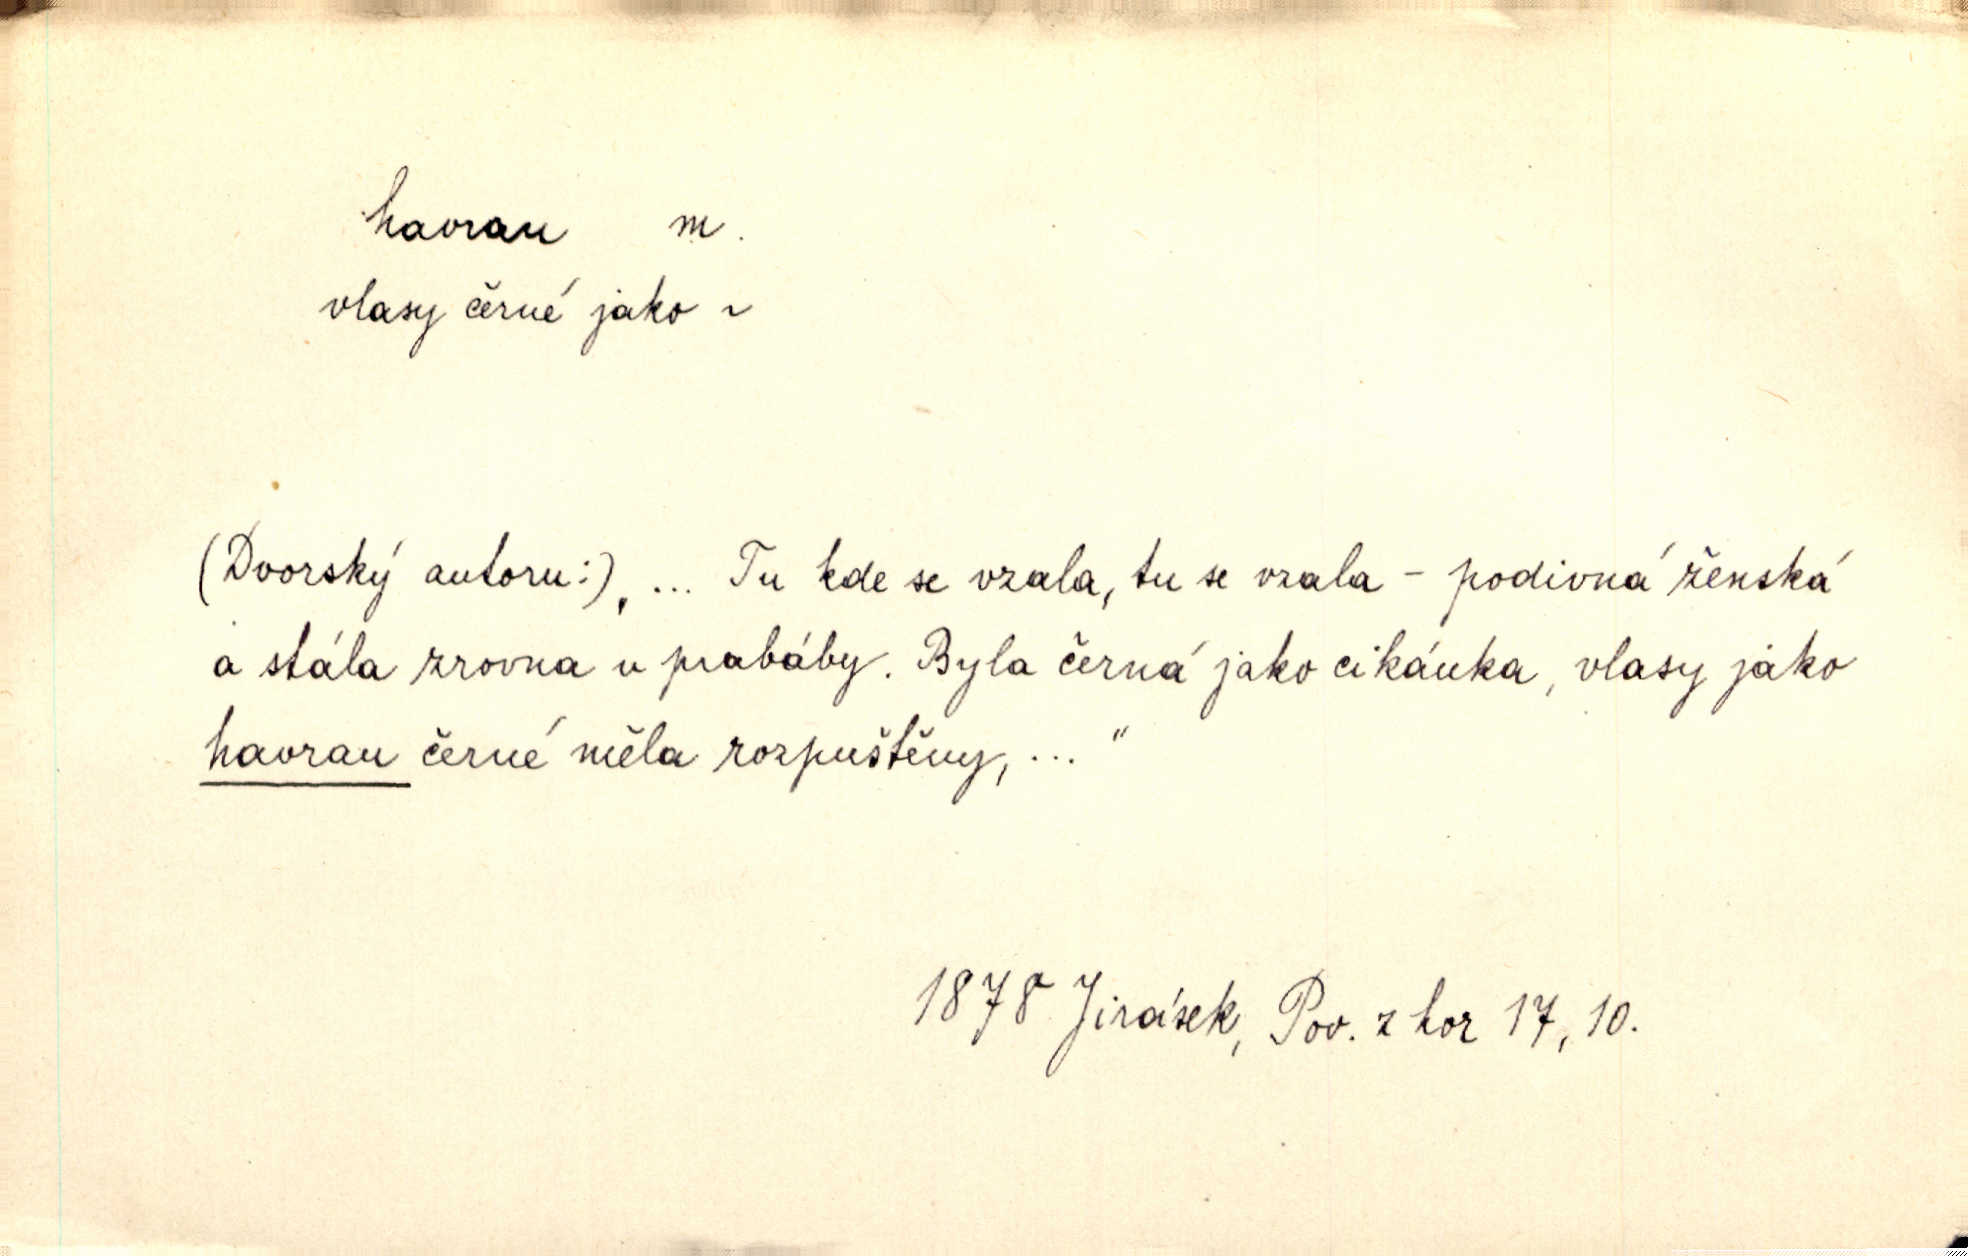 havran m.
vlasy černé jako ~
(Dvorský autoru:) „... Tu kde se vzala, tu se vzala – podivná ženská
a stála zrovna u prabáby. Byla černá jako cikánka, vlasy jako
havran černé měla rozpuštěny, ...“
1878 Jirásek, Pov. z hor 17, 10.